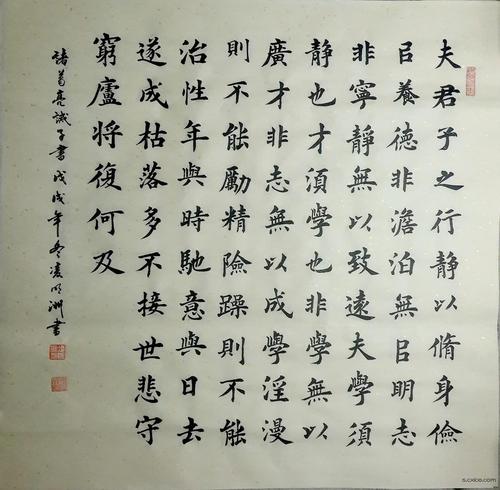 夫君子之行靜以脩身儉
㠯養德非澹泊無㠯明志
非寧靜無以致遠夫學須
靜也才須學也非學無以
廣才非志無以成學淫漫
則不能勵精險躁則不能
治性年與時馳意與日去
遂成枯落多不接世悲守
窮廬將復何及
諸葛亮誡子書戊戌年冬凌明洲書